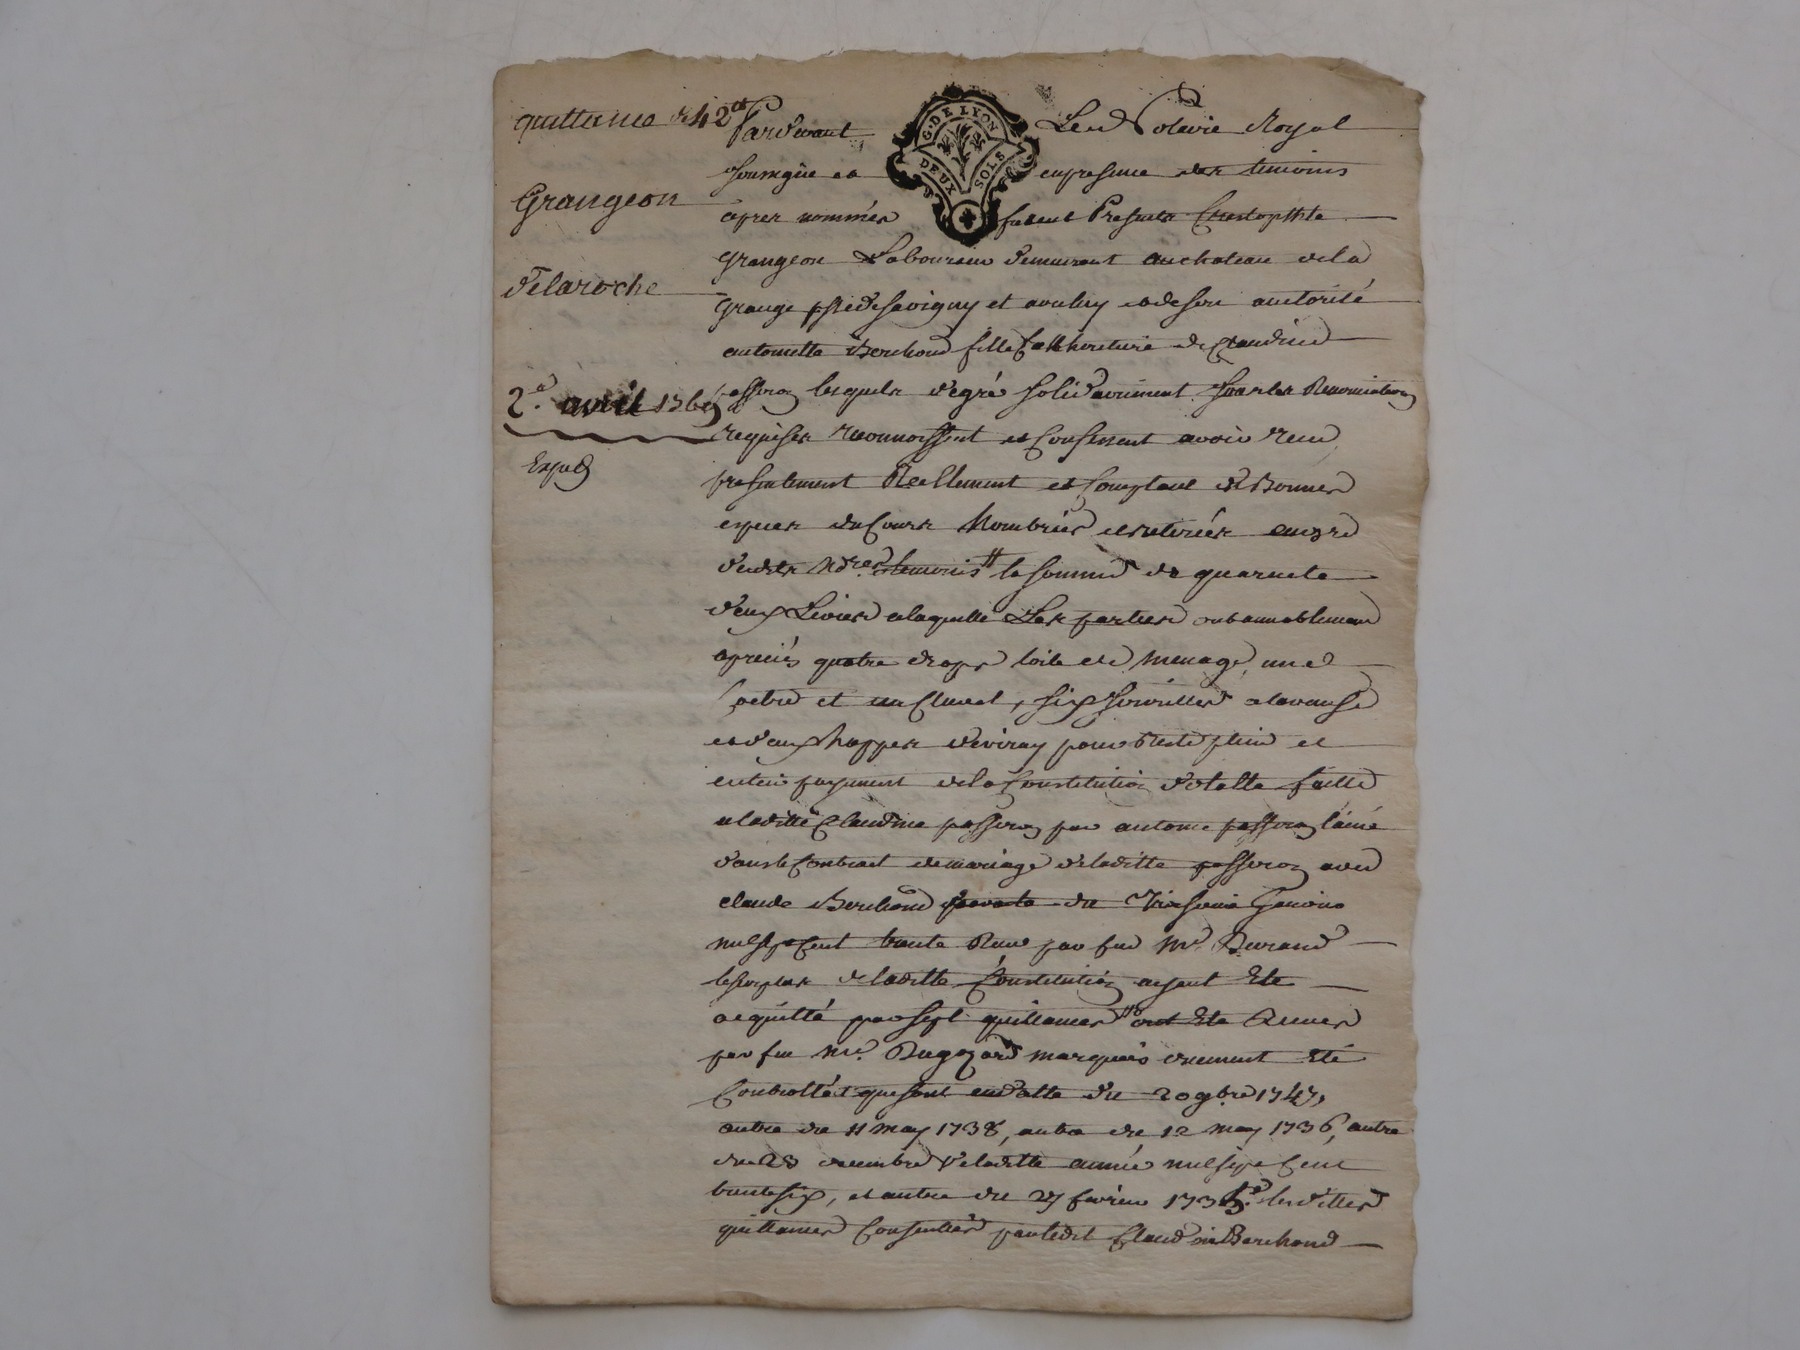 quittance de 42ᵗᵗ
Grangeon
delaroche
2.e avril 1765
Expéd
G. DE LYON
DEUX SOLS
Pardevant Le Notaire Royal
soussigné et en presence des temoins
apres nommés furent Presents Christophle
grangeon Laboureur demeurant au chateau de la
grange psse de savigny et avec luy et de son autorité
antoinette Berchoud fille et heritiere de Claudine
passeron lesquels de gré solidairement sous les Renonciations
requises reconnoissent et Confessent avoir receu
presentement Reellement et Comptant et Bonnes
especes du Cours Nombrées et retirées
la somme de quarante
deux Livres a laquelle Les parties ont amiablement
apreciés quatre draps toile de menage, une
et un , six serviettes
et deux nappes pour Reste plein et
entier payement de la Constitution dotalle faitte
a laditte Claudine passeron par antoine passeron l'ainé
dans le Contract de mariage de laditte passeron avec
claude Berchoud du Troisieme
mil sept Cent trente Receu par feu Me Durand
le surplus de laditte Constitution ayant Eté
acquitté par sept quittances ont Eté Receues
par feu Me. marquis Eté
Controllées que sont en datte du 20 9bre 1747,
autre du 11 may 1738, autre du 12 may 1736, autre
du 28 decembre de laditte année mil sept Cent
trente six, et autre du 27 fevrier lesdittes
quittances Consenties par ledit Claude Berchoud